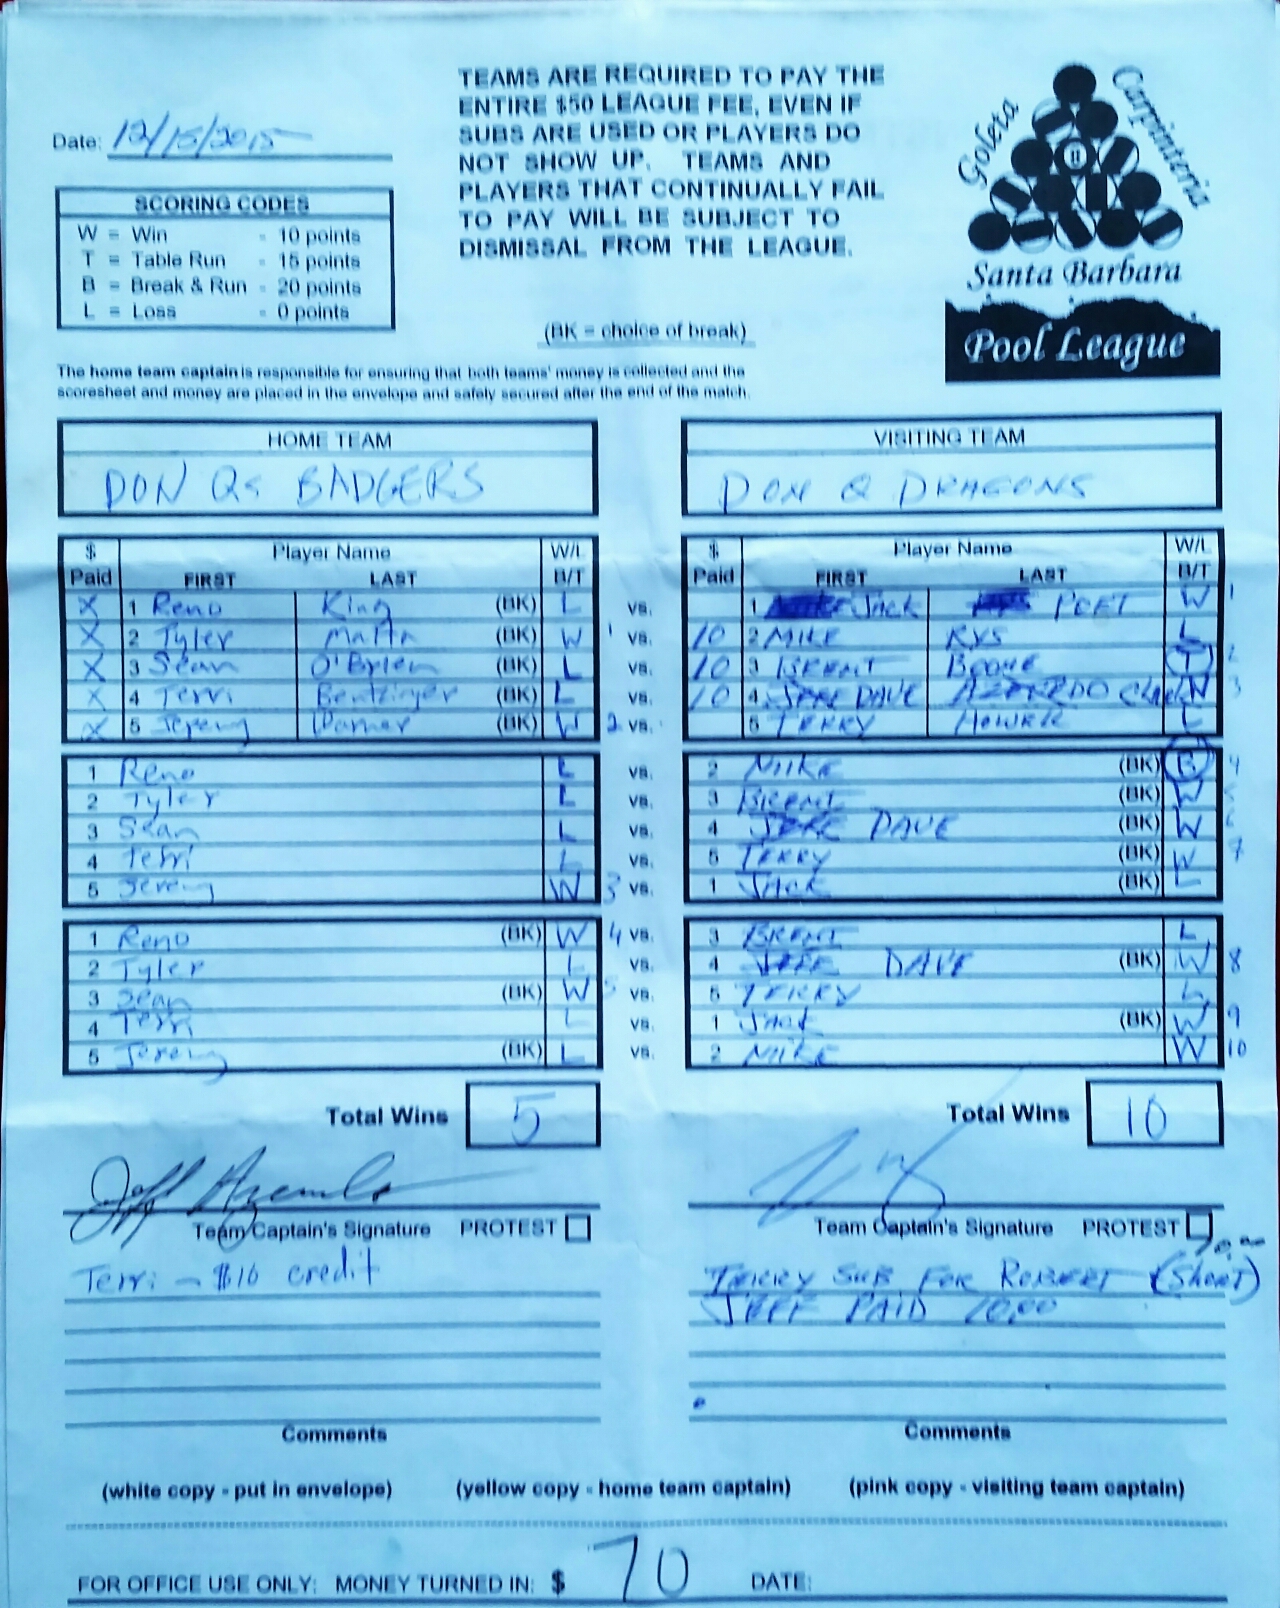 TEAMS ARE REQUIRED TO PAY THE
ENTIRE $50 LEAGUE FEE, EVEN IF
SUBS ARE USED OR PLAYERS DO
NOT SHOW UP. TEAMS AND
PLAYERS THAT CONTINUALLY FAIL
TO PAY WILL BE SUBJECT TO
DISMISSAL FROM THE LEAGUE.
Goleta Carpinteria
Santa Barbara
Pool League
Date: 12/15/2015
SCORING CODES
W = Win - 10 points
T = Table Run - 15 points
B = Break & Run - 20 points
L = Loss - 0 points
(BK = choice of break)
The home team captain is responsible for ensuring that both teams' money is collected and the
scoresheet and money are placed in the envelope and safely secured after the end of the match.
HOME TEAM VISITING TEAM
DON Qs BADGERS DON Q DRAGONS
$ Paid Player Name FIRST LAST W/L B/T $ Paid Player Name FIRST LAST W/L B/T
X 1 Reno King (BK) L vs. 1 JACK POET W 1
X 2 Tyler (BK) W 1 vs. 10 2 MIKE RYS L
X 3 Sean O'Brien (BK) L vs. 10 3 BRENT BOONE T 2
X 4 Terri (BK) L vs. 10 4 DAVE W 3
X 5 Jeremy (BK) W 2 vs. 5 TERRY L
1 Reno L vs. 2 MIKE (BK) B 4
2 Tyler L vs. 3 BRENT (BK) W 5
3 Sean L vs. 4 DAVE (BK) W 6
4 Terri L vs. 5 TERRY (BK) W 7
5 Jeremy W 3 vs. 1 JACK (BK) L
1 Reno (BK) W 4 vs. 3 BRENT L
2 Tyler L vs. 4 DAVE (BK) W 8
3 Sean (BK) W 5 vs. 5 TERRY L
4 Terri L vs. 1 JACK (BK) W 9
5 Jeremy (BK) L vs. 2 MIKE W 10
Total Wins 5 Total Wins 10
Team Captain's Signature PROTEST Team Captain's Signature PROTEST
Terri - $10 credit
TERRY SUB FOR ROBERT (SHORT)
JEFF PAID 10.00
Comments Comments
(white copy - put in envelope) (yellow copy - home team captain) (pink copy - visiting team captain)
FOR OFFICE USE ONLY: MONEY TURNED IN: $ 70 DATE: